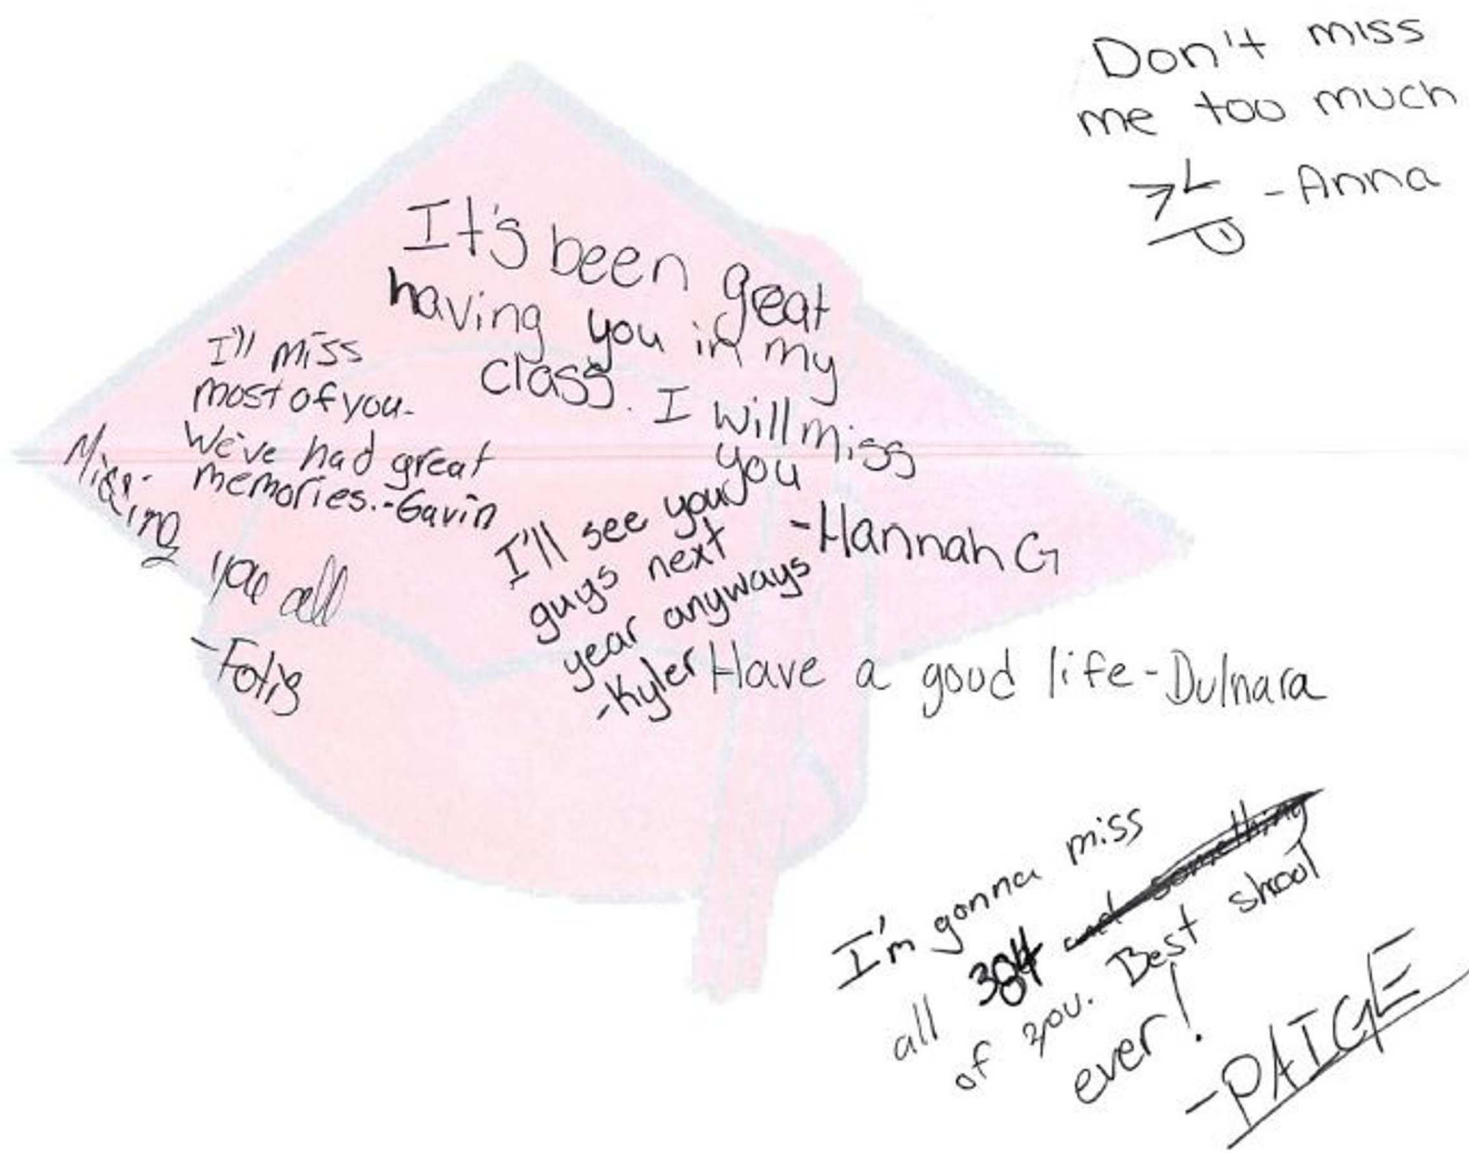 Don't miss
me too much
-Anna
It's been great
having you in my
class. I will miss
you
-Hannah G
I'll miss
most of you.
We've had great
memories.-Gavin
Missing you all
-Fotis
I'll see you
guys next
year anyways
-Kyler
Have a good life-Dulnara
I'm gonna miss
all 384 and something
of you. Best shcool
ever!
-PAIGE